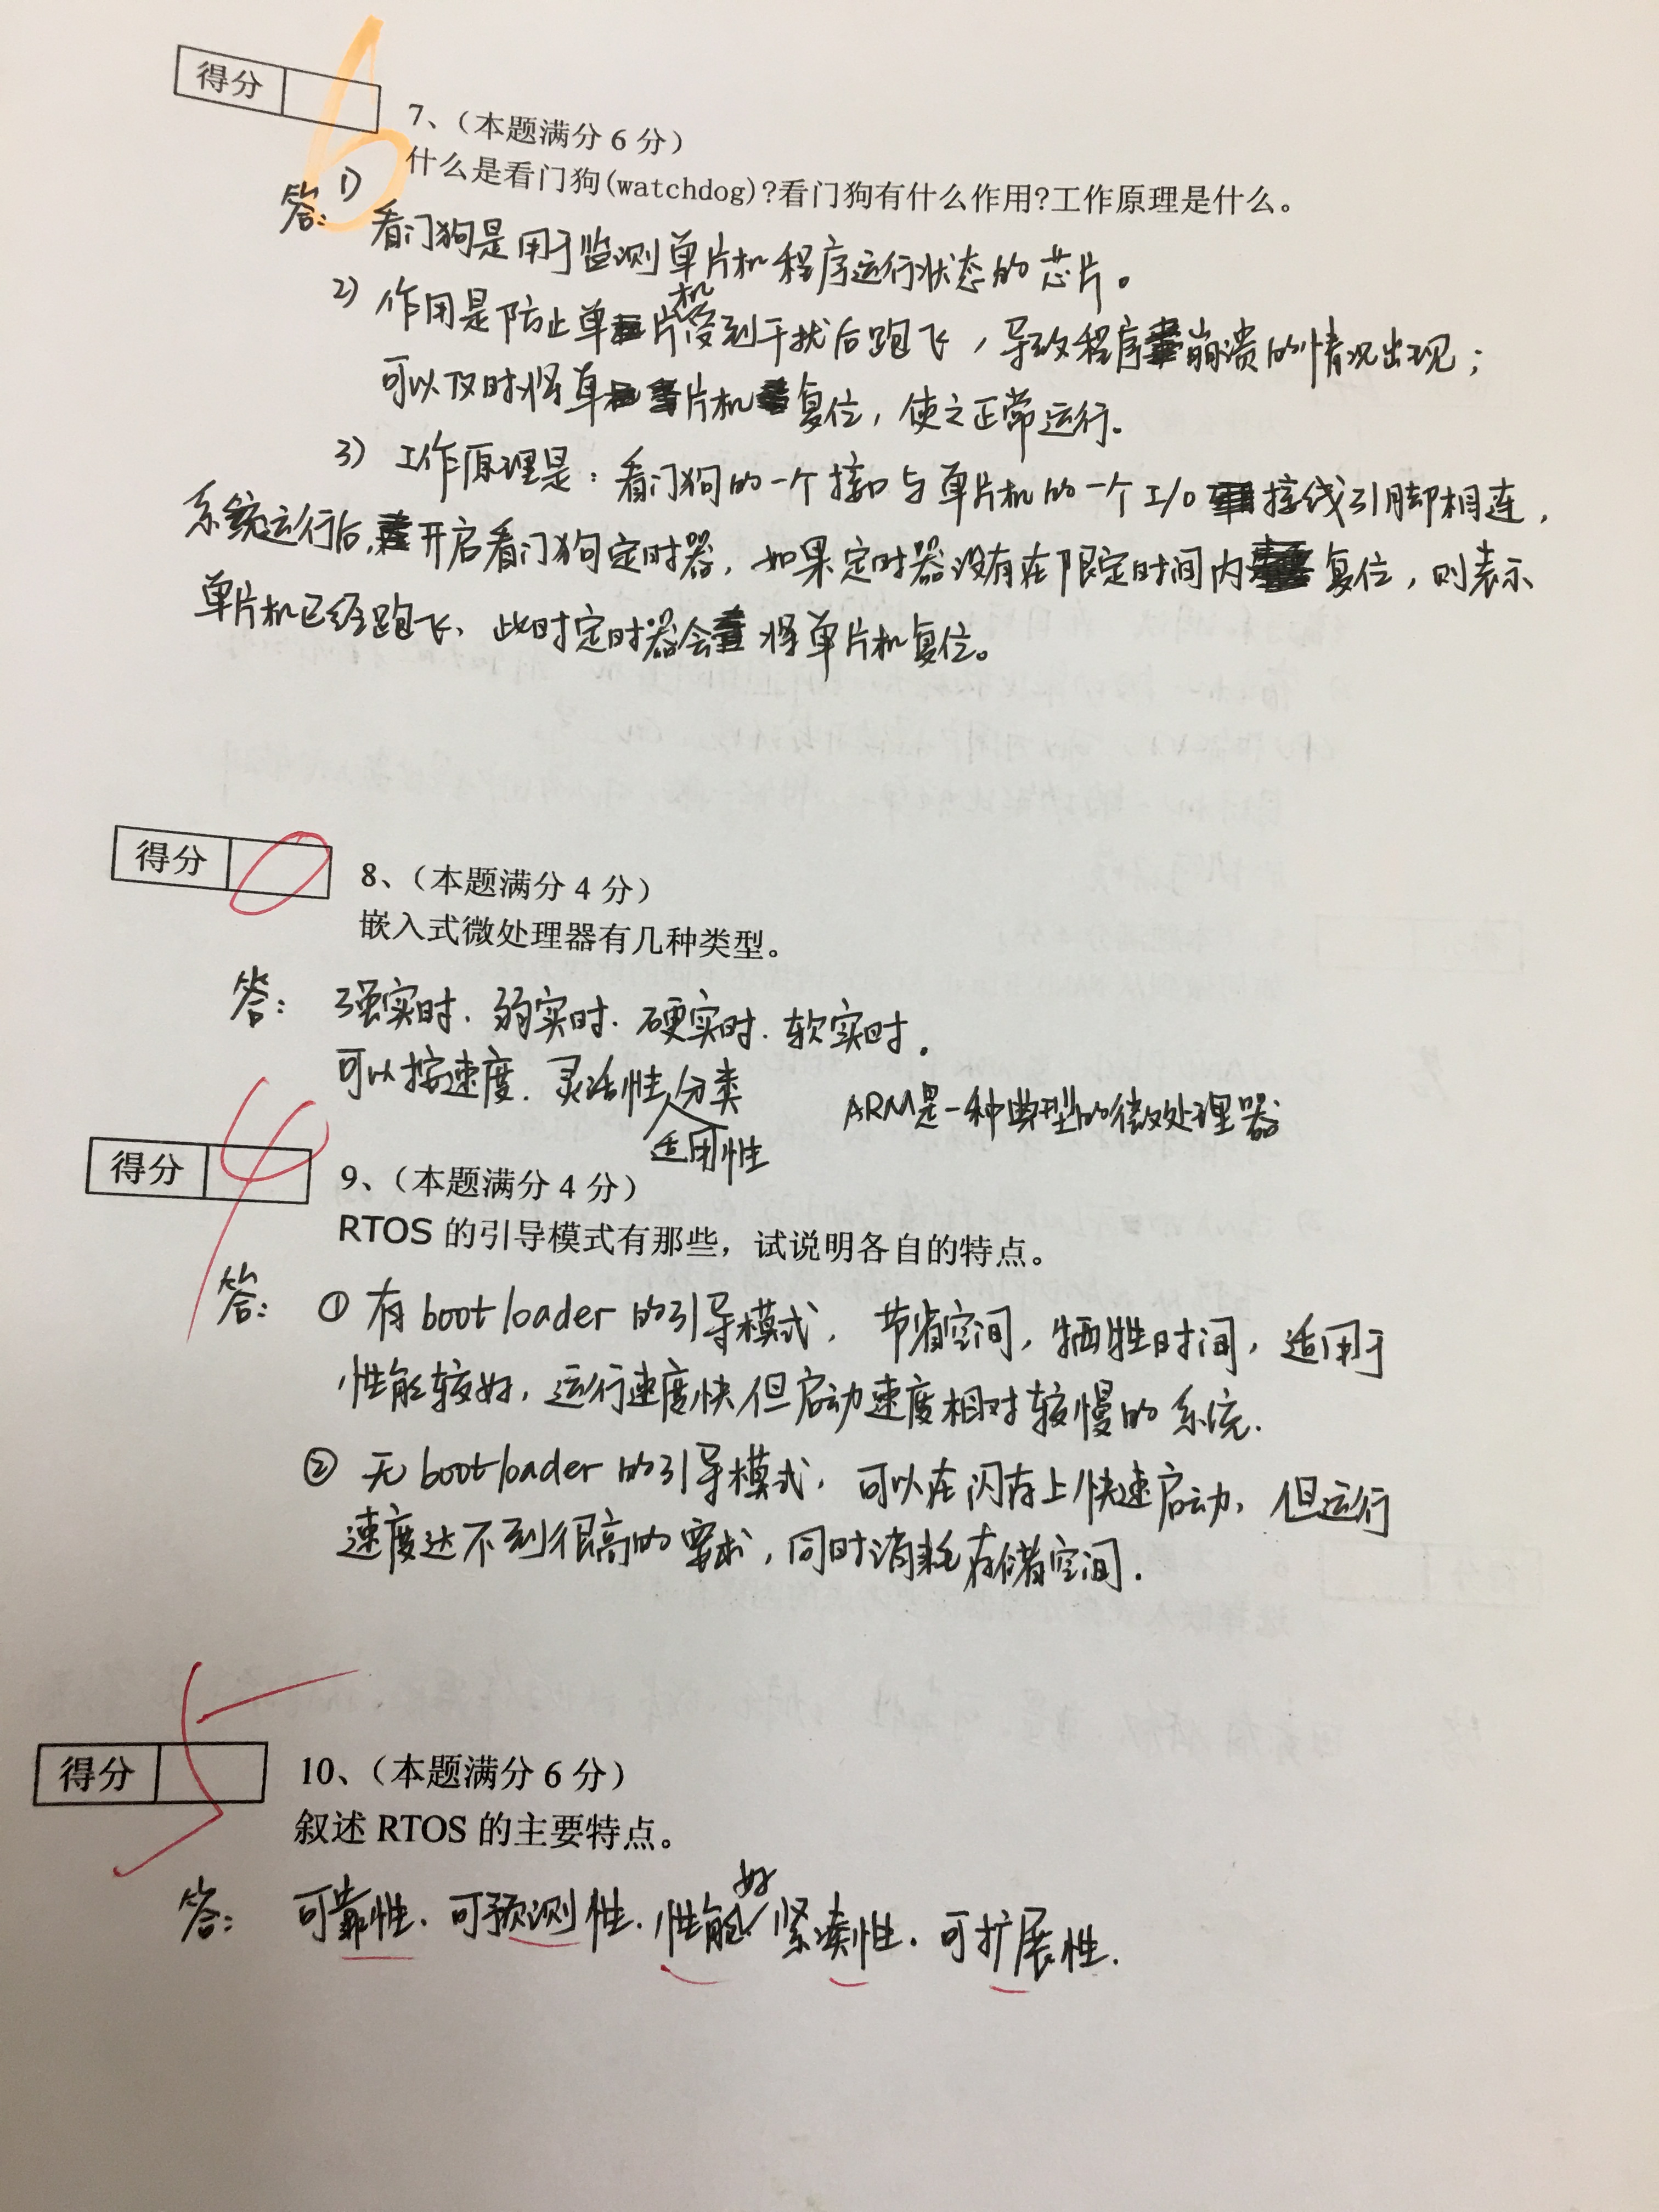 得分
6
7、（本题满分 6 分）
什么是看门狗(watchdog)?看门狗有什么作用?工作原理是什么。
答: 1) 看门狗是用于监测单片机程序运行状态的芯片。
2) 作用是防止单片机受到干扰后跑飞，导致程序崩溃的情况出现；
可以及时将单片机复位，使之正常运行。
3) 工作原理是：看门狗的一个接口与单片机的一个 I/O 接线引脚相连，
系统运行后，开启看门狗定时器，如果定时器没有在限定时间内复位，则表示
单片机已经跑飞、此时定时器会将单片机复位。
得分
0
8、（本题满分 4 分）
嵌入式微处理器有几种类型。
答: 强实时、弱实时、硬实时、软实时。
可以按速度、灵活性、适用性分类
ARM是一种典型的微处理器
得分
4
9、（本题满分 4 分）
RTOS 的引导模式有那些，试说明各自的特点。
答: ① 有 bootloader 的引导模式，节省空间，牺牲时间，适用于
性能较好，运行速度快但启动速度相对较慢的系统.
② 无 bootloader 的引导模式，可以在闪存上快速启动，但运行
速度达不到很高的要求，同时消耗存储空间.
得分
5
10、（本题满分 6 分）
叙述 RTOS 的主要特点。
答: 可靠性、可预测性、性能好、紧凑性、可扩展性.